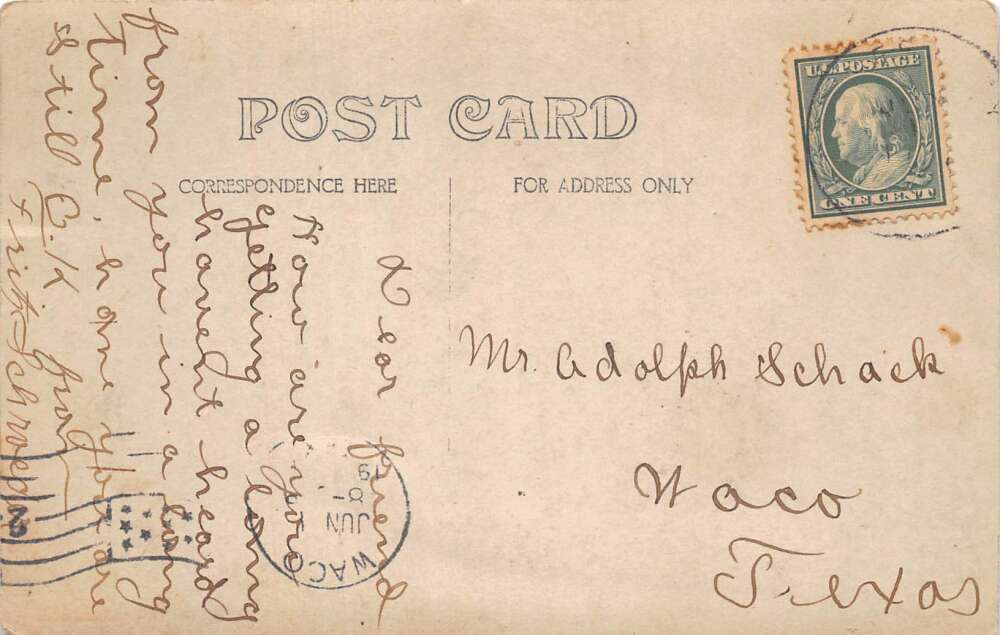 POST CARD
CORRESPONDENCE HERE
FOR ADDRESS ONLY
U.S. POSTAGE
ONE CENT
Dear friend
How are you
getting a long
havent heard
from you in a long
time, hope you are
still O.K.
Fritz Schroeder
Mr. Adolph Schack
Waco
Texas
WACO
JUN